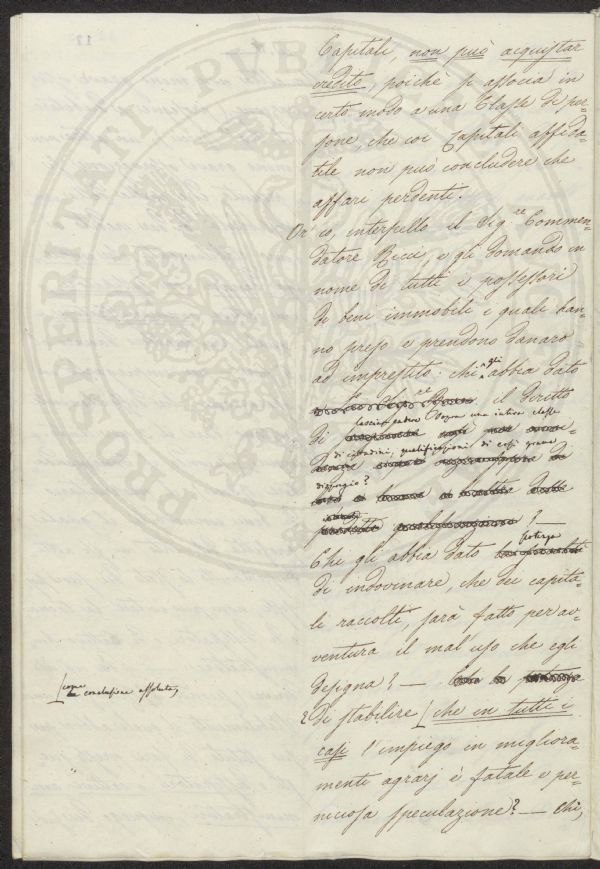 Capitali, non può acquistar
credito, poichè si associa in
certo modo a una Classe di per=
sone, che coi Capitali affida=
tile non può concludere che
affari perdenti.
Or' io, interpello il Sig.re Commen=
datore Ricci, e gli domando in
nome di tutti i possessori
di beni immobili i quali han=
no preso e prendono danaro
ad imprestito: chi gli abbia dato
il diritto
di lasciar cadere sopra una intiera classe
di cittadini, qualificazioni di così grave
dispregio?
? —
Chi gli abbia dato potenza
di indovinare, che dei capita=
li raccolti, sarà fatto per av=
ventura il mal' uso che egli
designa? —
e di stabilire [che in tutti i
[come conclusione assoluta,
casi l'impiego in migliora=
menti agrarj è fatale e per=
niciosa speculazione? — Chi,
17
PROSPERITATI PVB